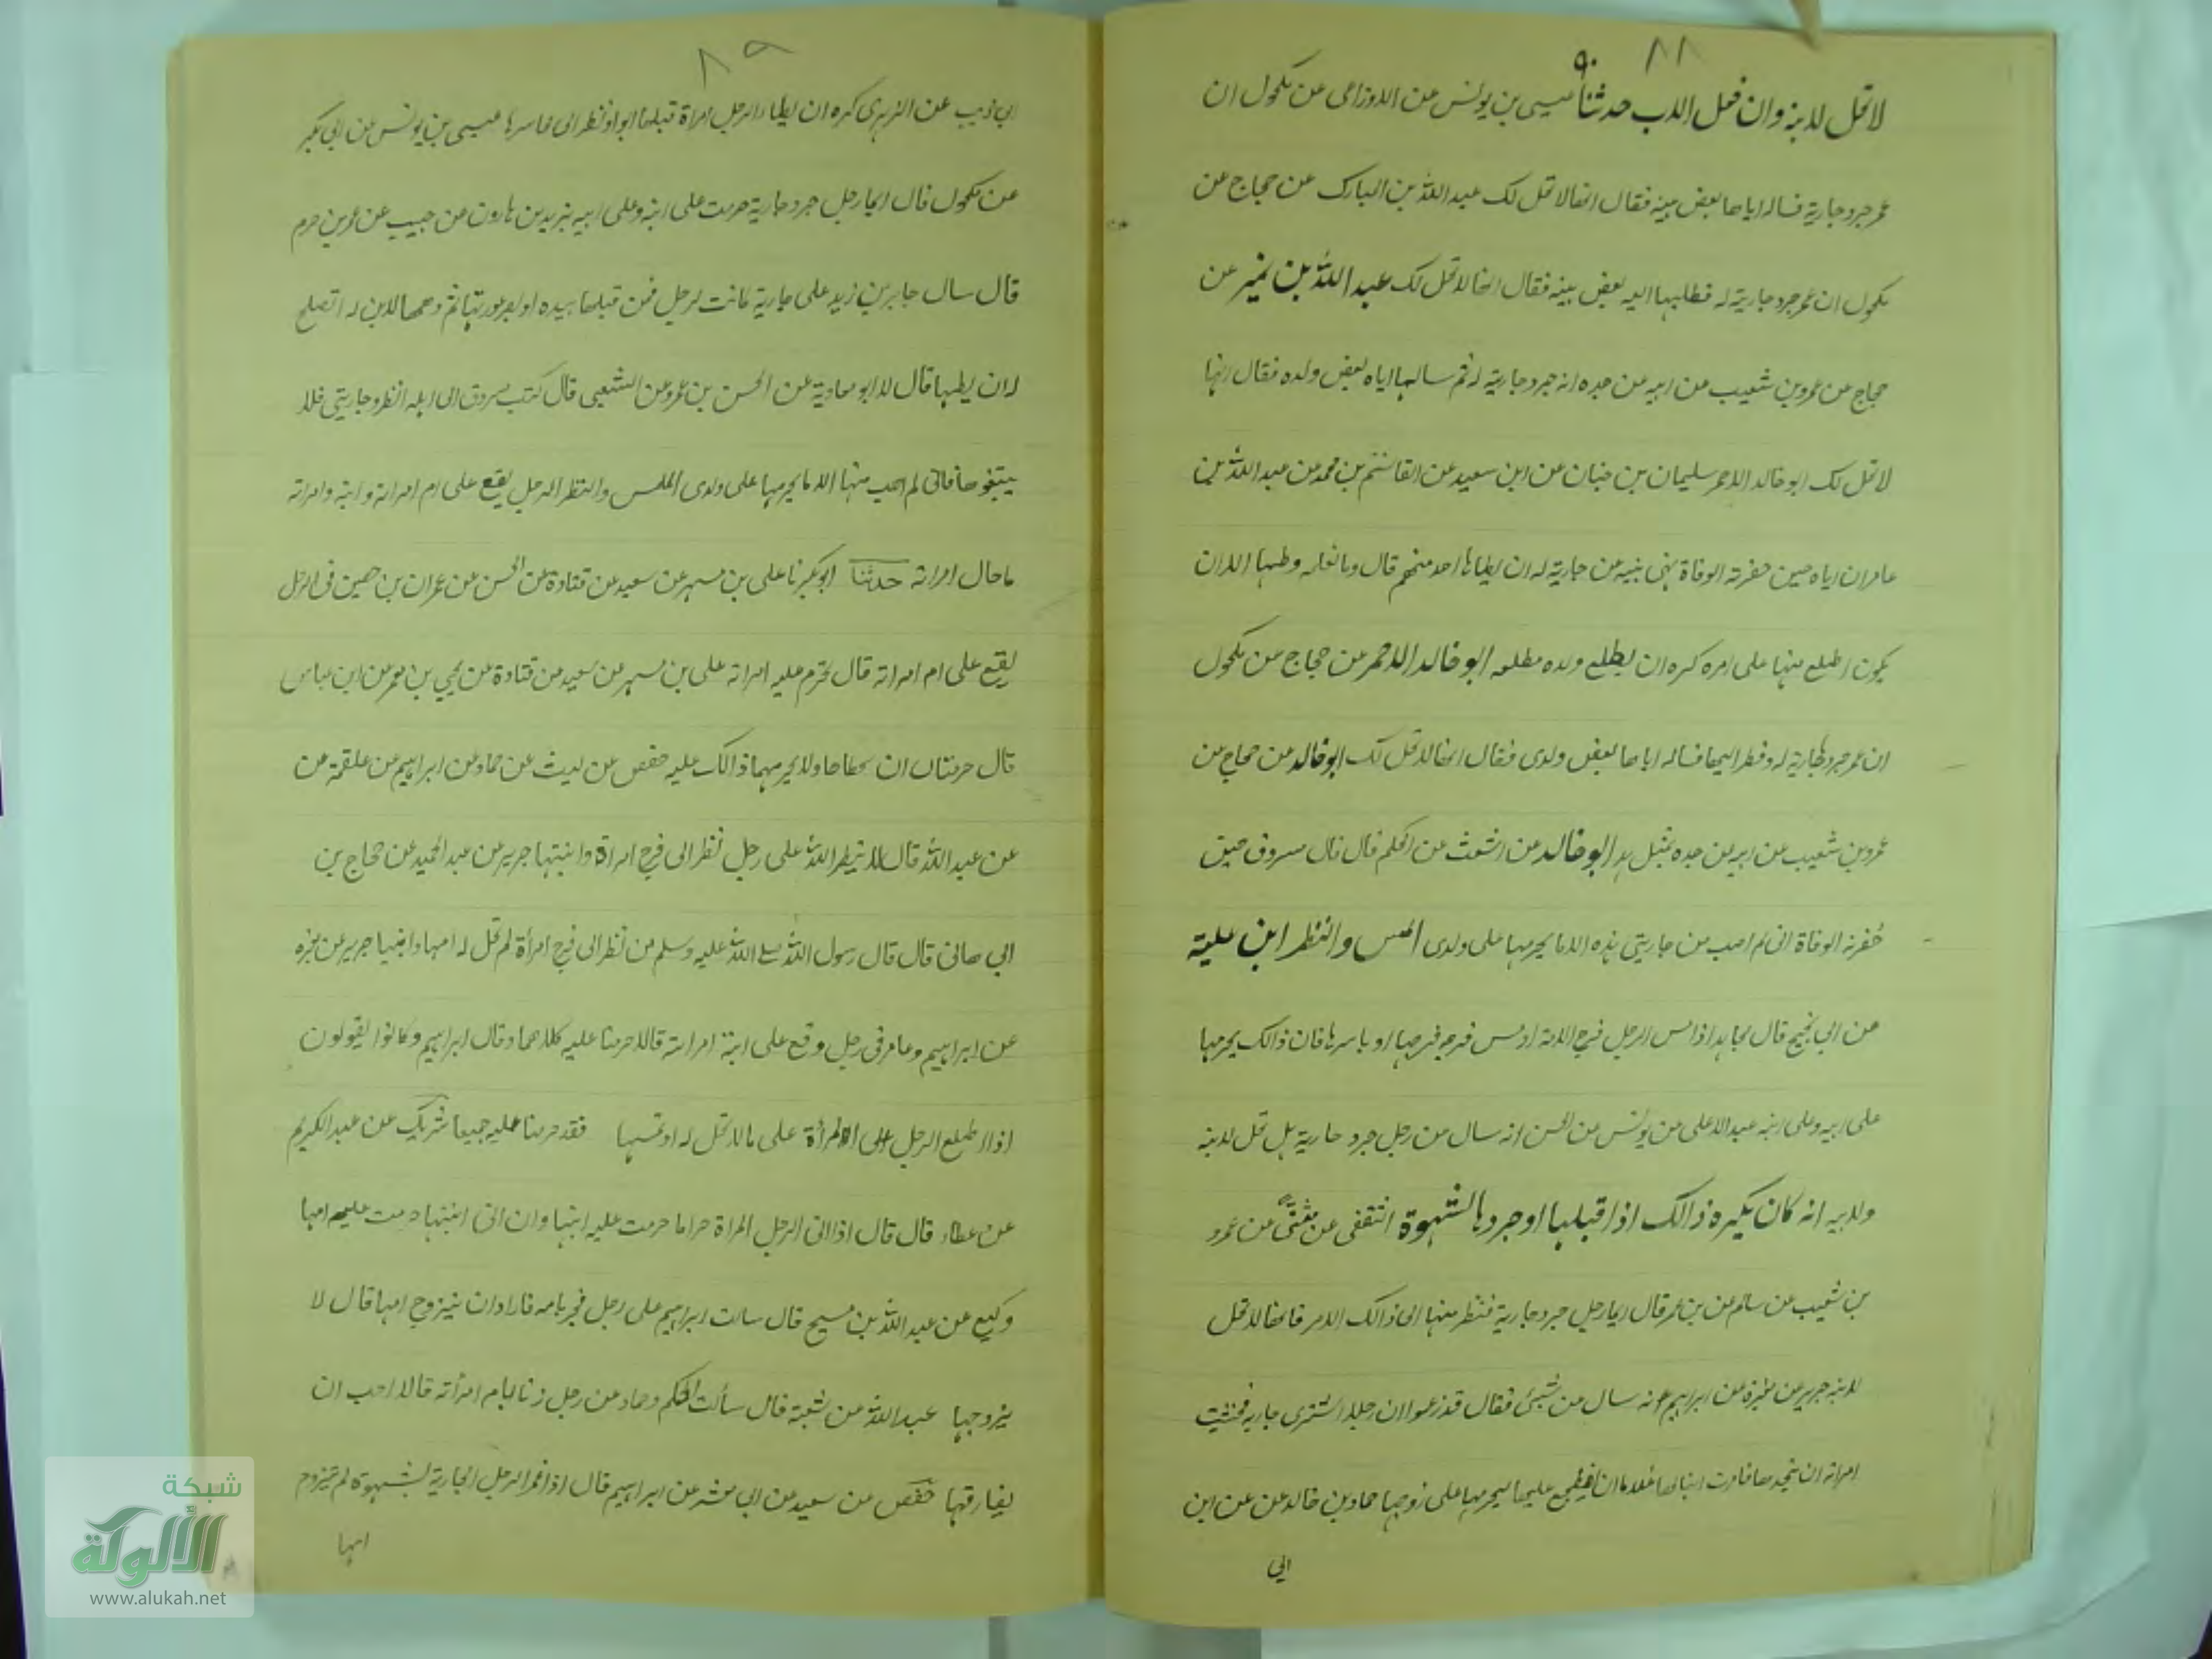 ٨٨
٩٠
لا تحل لابنه وان فعل الاب حدثنا عيسى بن يونس عن الاوزاعى عن مكحول ان
عمر جرد جارية فساله اياها بعض بنيه فقال انها لا تحل لك عبد الله بن المبارك عن حجاج عن
مكحول ان عمر جرد جارية له فطلبها اليه بعض بنيه فقال انها لا تحل لك عبد الله بن نمير عن
حجاج عن عمرو بن شعيب عن ابيه عن جده انه جرد جارية له ثم سالها اياه بعض ولده فقال انها
لا تحل لك ابو خالد الاحمر سليمان بن حبان عن ابن سعيد عن القاسم بن محمد عن عبد الله بن
عامر ان اباه حين حضرته الوفاة نهى بنيه عن جارية له ان يطاها احد منهم قال وما نعلمه وطيها الا ان
يكون اطلع منها على امره كره ان يطلع ولده مطلعه ابو خالد الاحمر عن حجاج عن مكحول
ان عمر جرد جارية له ونظر اليها فساله اياها بعض ولدى فقال انها لا تحل لك ابو خالد عن حجاج عن
عمرو بن شعيب عن ابيه عن جده بمثل ابو خالد عن اشعث عن الحكم قال قال مسروق حين
حضرته الوفاة انى لم اصب من جاريتى هذه الا ما يحرمها على ولدى المس والنظر ابن علية
عن ابى نجيح قال مجاهد اذا مس الرجل فرج الامة او مس فرجه فرجها او باشرها فان ذالك يحرمها
على ابيه وعلى ابنه عبد الاعلى عن يونس عن الحسن انه سال عن رجل جرد جارية هل تحل لابنه
ولابيه انه كان يكره ذالك اذا قبلها او جردها لشهوة الثقفى عن مثنى عن عمرو
بن شعيب عن سالم عن بن عمر قال ايما رجل جرد جارية فنظر منها الى ذالك الامر فانها لا تحل
لابنه جرير عن مغيرة عن ابراهيم سال عن شىئ فقال قد زعموا ان رجلا اشترى جارية فخشيت
امراته ان يتخذها فامرت ابنا لها غلاما ان يضطجع عليها ليحرمها على زوجها حماد بن خالد عن عن ابن
ابى
٨٩
ابى ذيب عن الزهرى كره ان يطاء الرجل امراة قبلها ابوا ونظر الى محاسرها عيسى بن يونس عن ابى بكر
عن مكحول قال ايما رجل جرد جارية حرمت على ابنه وعلى ابيه يزيد بن هارون عن حبيب عن عمرو بن حرم
قال سال جابر بن زيد على جارية كانت لرجل فمن قبلها بيده او ابصر عورتها ثم وهبها لابن له اتصلح
له ان يطيها قال لا ابو معاوية عن الحسن بن عمرو عن الشعبى قال كتب مسروق الى اهله انظروا جاريتى فلا
يبتغوها فانى لم اصب منها الا ما يحرمها على ولدى اللمس والنظر الرجل يقع على ام امراته وابنه وامراته
ما حال امراته حدثنا ابو بكر نا على بن مسهر عن سعيد عن قتادة عن الحسن عن عمران بن حصين فى الرجل
يقع على ام امراته قال تحرم عليه امراته على بن مسهر عن سعيد عن قتادة عن يحيى بن يعمر عن ابن عباس
قال حرمتان ان تخطاها ولا يحرمهما ذالك عليه حفص عن ليث عن حماد عن ابراهيم عن علقمة عن
عن عبد الله قال لا ينظر الله على رجل نظر الى فرج امراة وابنتها جرير عن عبد الحميد عن حجاج بن
ابى هانى قال قال رسول الله صلى الله عليه وسلم من نظر الى فرج امرأة لم تحل له امها وابنتها جرير عن
عن ابراهيم وعامر فى رجل وقع على ابنة امراته قالا حرمتا عليه كلاهما وقال ابراهيم وكانوا يقولون
اذا اطلع الرجل على المرأة على ما لا تحل له او لمسها فقد حرمنا عليه جميعا شريك عن عبد الكريم
عن عطاء قال قال اذا اتى الرجل المراة حراما حرمت عليه ابنتها وان اتى ابنتها حرمت عليه امها
وكيع عن عبد الله بن مسيح قال سالت ابراهيم على رجل فجر بامه فاراد ان يتزوج امها قال لا
يزوجها عبد الله عن شعبة قال سألت الحكم وحماد عن رجل زنا بام امرأته قالا احب ان
يفارقها حفص عن سعيد عن ابى معشر عن ابراهيم قال اذا غمز الرجل الجارية لشهوة لم يتزوج
امها
شبكة
الألوكة
www.alukah.net